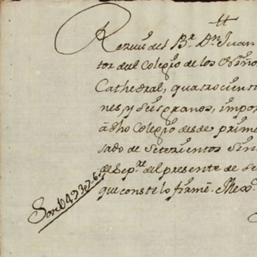 Reziui del B.r D.n Juan
tor del Colegio de los Niños
Cathedral, quatrocient
nes y seis granos, impor
a dho Colegio desde prime
sado de Setecientos Sin
de Sep.re del presente de
que conste lo firme. Mex.co
Son